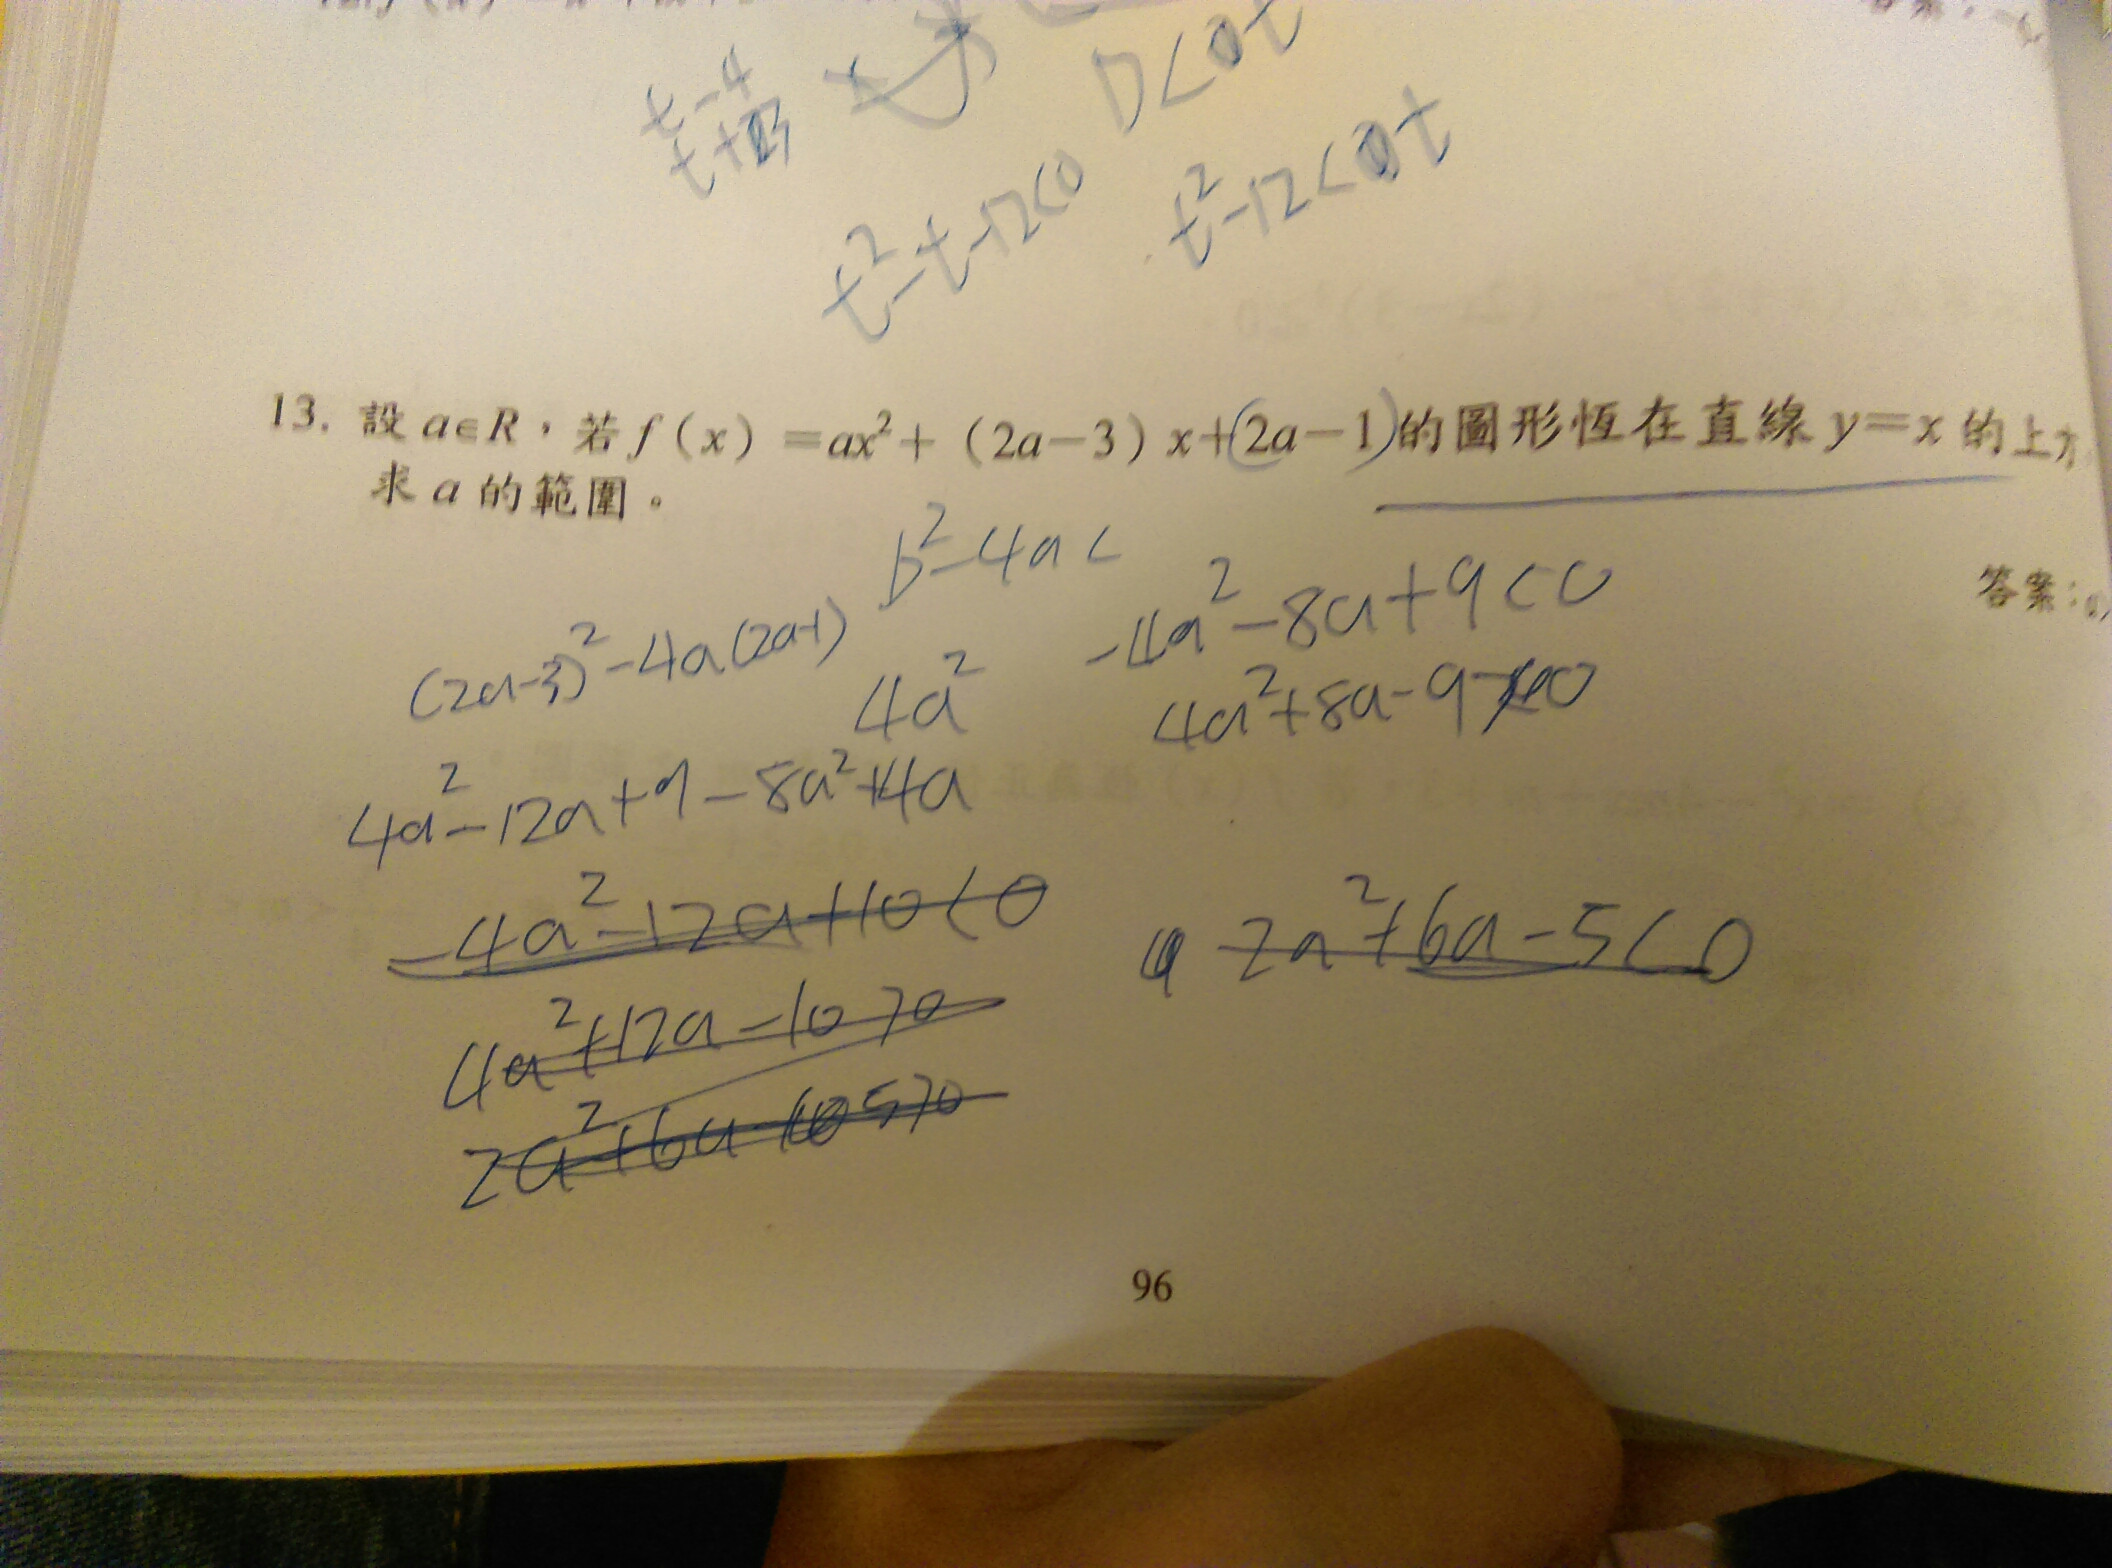 t-4
t+3
D<0t
t²-12<0t
t²-t-12<0
13. 設 a∈R,若 f(x)=ax²+(2a-3)x+(2a-1)的圖形恆在直線 y=x 的上方
求 a 的範圍。
答案:a
b²-4ac
(2a-3)²-4a(2a-1)
4a²
-4a²-8a+9<0
4a²+8a-9>0
4a²-12a+9-8a²+4a
-4a²-12a+10<0
2a²+6a-5<0
4a²+12a-10>0
2a²+6a-5>0
96